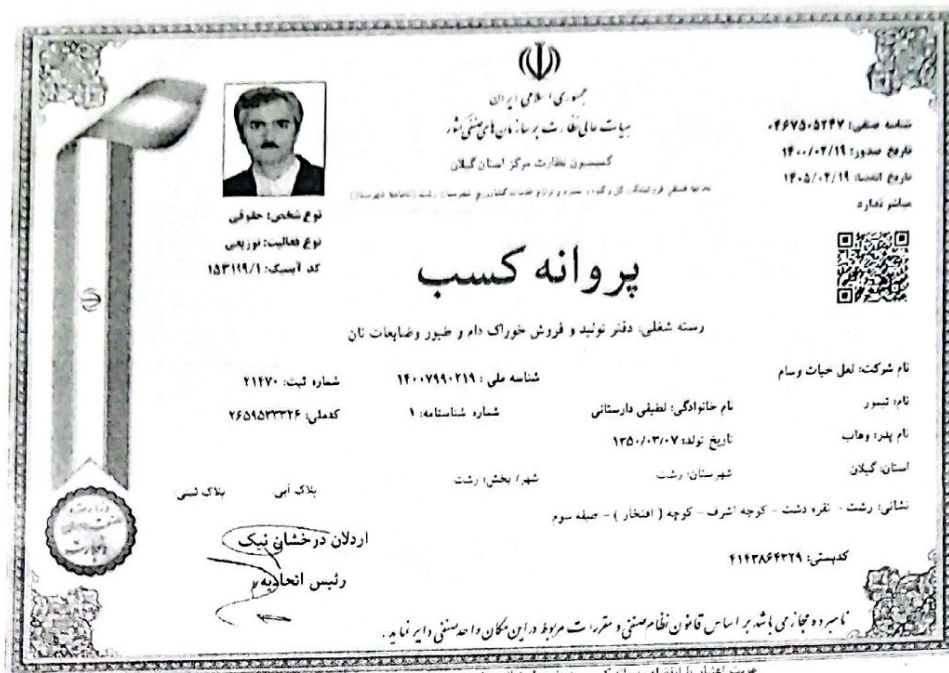 جمهوری اسلامی ایران
هیات عالی نظارت بر سازمان های صنفی کشور
کمیسیون نظارت مرکز استان گیلان
شناسه صنفی: ۰۴۶۷۵۰۵۲۴۷
تاریخ صدور: ۱۴۰۰/۰۲/۱۹
تاریخ انقضا: ۱۴۰۵/۰۲/۱۹
مباشر ندارد
نوع شخص: حقوقی
نوع فعالیت: توزیعی
کد آیسیک: ۱۵۳۱۱۹/۱
پروانه کسب
رسته شغلی: دفتر تولید و فروش خوراک دام و طیور وضایعات نان
نام شرکت: لعل حیات وسام شناسه ملی : ۱۴۰۰۷۹۹۰۲۱۹ شماره ثبت: ۲۱۴۷۰
نام: تیمور نام خانوادگی: لطیفی دارستانی شماره شناسنامه: ۱ کدملی: ۲۶۵۹۵۳۳۳۲۶
نام پدر: وهاب تاریخ تولد: ۱۳۵۰/۰۳/۰۷
استان: گیلان شهرستان: رشت شهر/ بخش: رشت پلاک آبی پلاک ثبتی
نشانی: رشت - نقره دشت - کوچه اشرف - کوچه ( افتخار ) - طبقه سوم
کدپستی: ۴۱۴۳۸۶۴۳۲۹
اردلان درخشان نیک
رئیس اتحادیه
نامبرده مجاز می باشد بر اساس قانون نظام صنفی و مقررات مربوط در این مکان واحد صنفی دایر نماید .